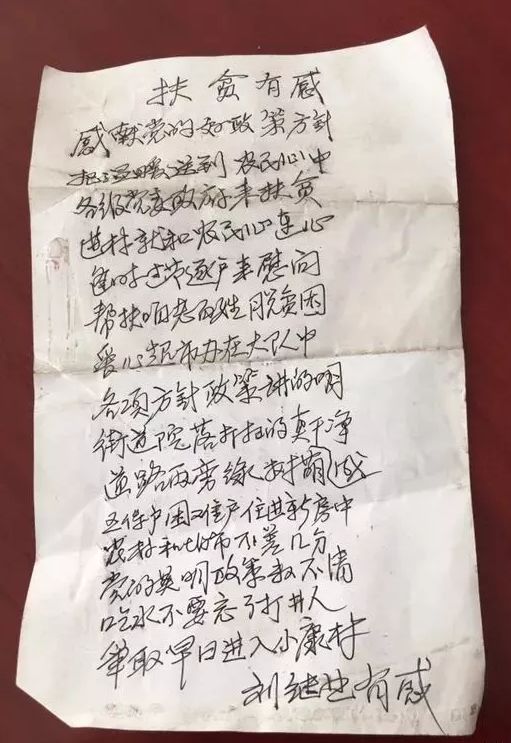 扶贫有感
感献党的好政策方针
把温暖送到农民心中
各级党委政府来扶贫
进村就和农民心连心
逢时过节逐户来慰问
帮扶咱老百姓脱贫困
爱心超市办在大队中
各项方针政策讲的明
街道院落打扫的真干净
道路两旁绿树成
五保户困难户住进新房中
农村和城市不差几分
党的英明政策数不清
吃水不要忘了打井人
争取早日进入小康村
刘继生有感